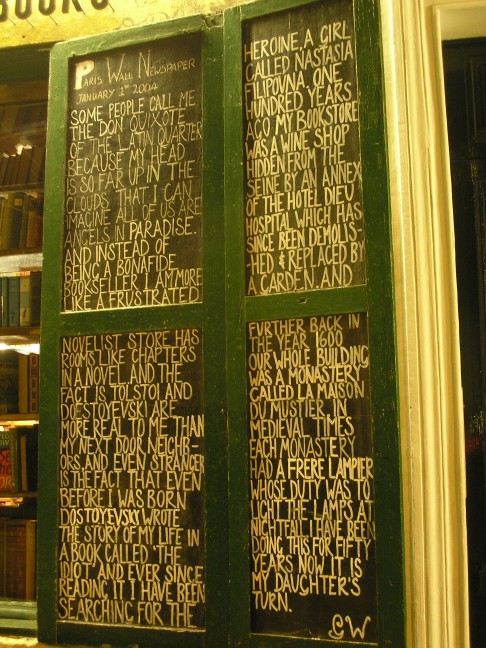 BOOKS
PARIS WALL NEWSPAPER
JANUARY 1ST 2004
SOME PEOPLE CALL ME
THE DON QUIXOTE
OF THE LATIN QUARTER
BECAUSE MY HEAD
IS SO FAR UP IN THE
CLOUDS THAT I CAN
IMAGINE ALL OF US ARE
ANGELS IN PARADISE.
AND INSTEAD OF
BEING A BONAFIDE
BOOKSELLER I AM MORE
LIKE A FRUSTRATED
NOVELIST STORE HAS
ROOMS LIKE CHAPTERS
IN A NOVEL AND THE
FACT IS TOLSTOI AND
DOESTOYEVSKI ARE
MORE REAL TO ME THAN
MY NEXT DOOR NEIGHB-
ORS, AND EVEN STRANGER
IS THE FACT THAT EVEN
BEFORE I WAS BORN
DOSTOYEVSKY WROTE
THE STORY OF MY LIFE IN
A BOOK CALLED 'THE
IDIOT AND EVER SINCE
READING IT I HAVE BEEN
SEARCHING FOR THE
HEROINE, A GIRL
CALLED NASTASIA
FILIPOVNA. ONE
HUNDRED YEARS
AGO MY BOOKSTORE
WAS A WINE SHOP
HIDDEN FROM THE
SEINE BY AN ANNEX
OF THE HOTEL DIEU
HOSPITAL WHICH HAS
SINCE BEEN DEMOLIS-
-HED & REPLACED BY
A GARDEN. AND
FURTHER BACK IN
THE YEAR 1600
OUR WHOLE BUILDING
WAS A MONASTERY
CALLED LA MAISON
DU MUSTIER. IN
MEDIEVAL TIMES
EACH MONASTERY
HAD A FRERE LAMPIER
WHOSE DUTY WAS TO
LIGHT THE LAMPS AT
NIGHTFALL. I HAVE BEEN
DOING THIS FOR FIFTY
YEARS NOW IT IS
MY DAUGHTER'S
TURN.
GW